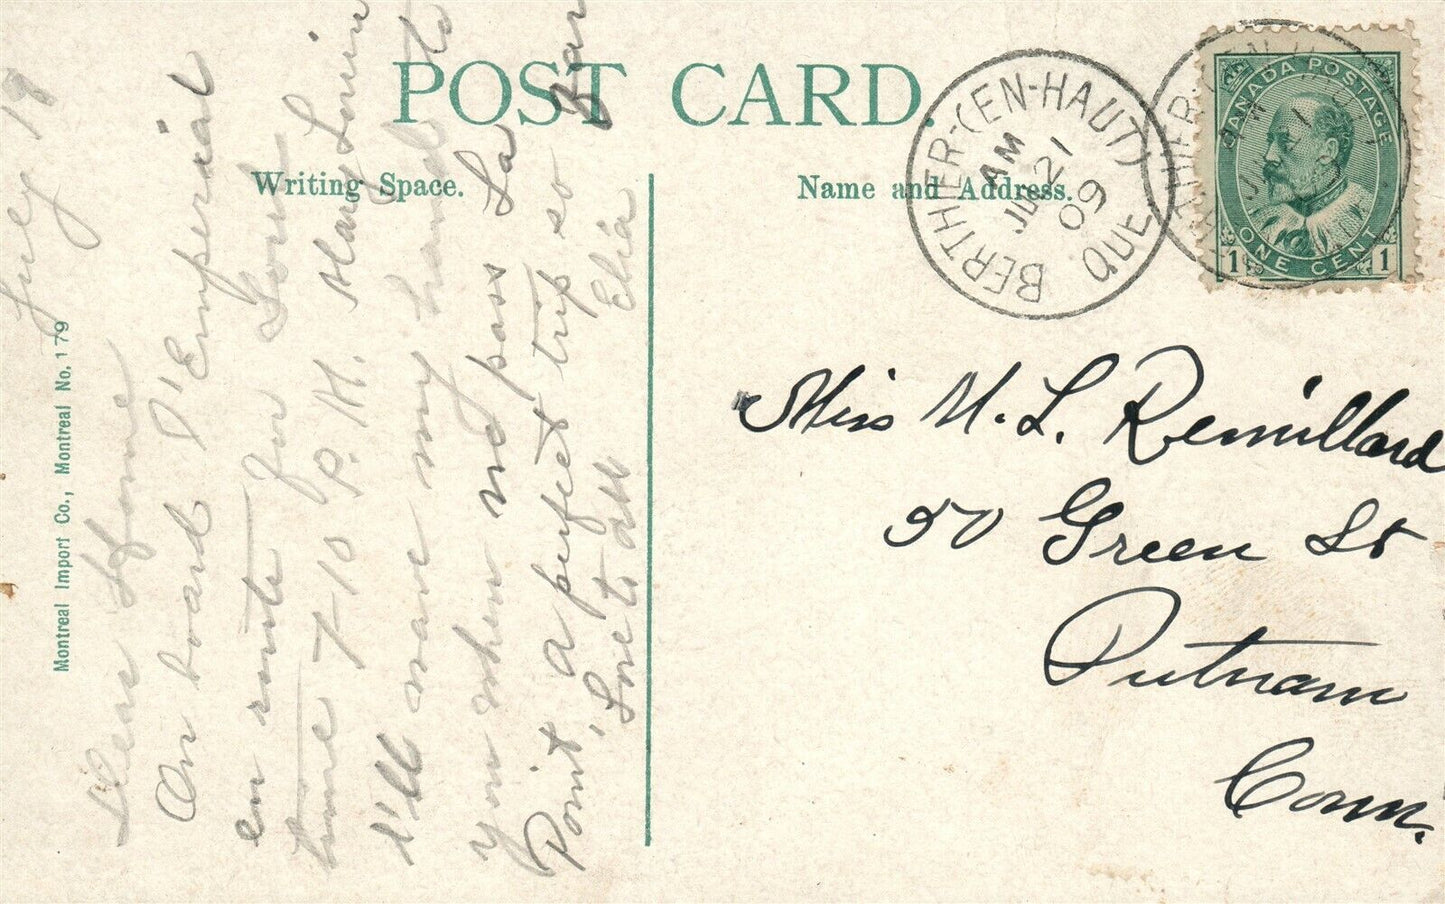 POST CARD.
Writing Space.
Name and Address.
Montreal Import Co., Montreal No. 179
July 19
Dear Home
On board l'Emperial
en route for Sorel
time 7-10 P.M. Mary Louise
I'll wave my hand to
you when we pass La
Point a perfect trip so far
Love to all
Elia
BERTHIER-(EN-HAUT)
QUE
AM
JUL 21
09
CANADA POSTAGE
ONE CENT
1 1
Miss M. L. Remillard
50 Green St
Putnam
Conn.